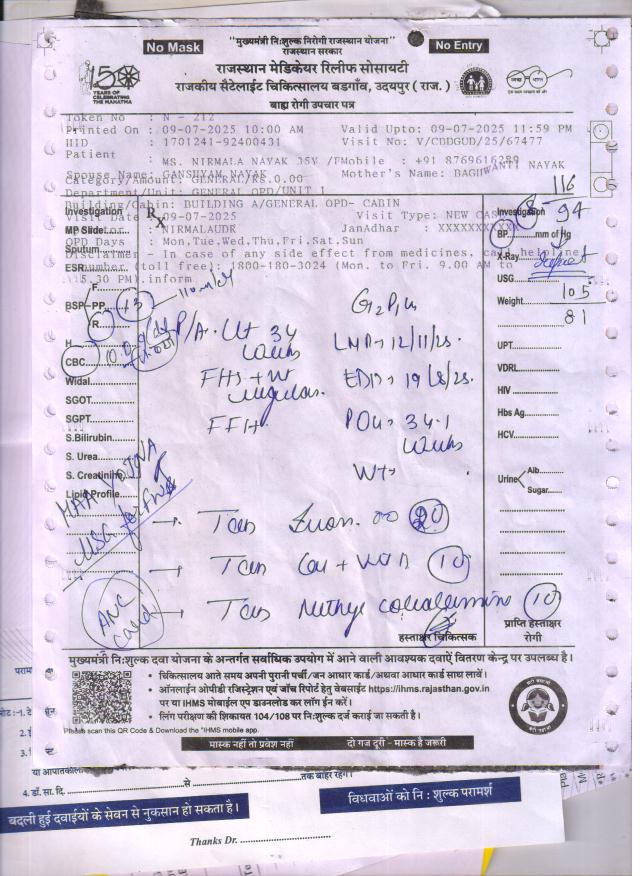 No Mask
"मुख्यमंत्री निःशुल्क निरोगी राजस्थान योजना"
राजस्थान सरकार
No Entry
राजस्थान मेडिकेयर रिलीफ सोसायटी
राजकीय सैटेलाईट चिकित्सालय बडगाँव, उदयपुर ( राज. )
बाह्य रोगी उपचार पत्र
150
YEARS OF
CELEBRATING
THE MAHATMA
Token No : N - 212
Printed On : 09-07-2025 10:00 AM Valid Upto: 09-07-2025 11:59 PM
HID : 1701241-92400431 Visit No: V/CBDGUD/25/67477
Patient : MS. NIRMALA NAYAK 35Y /F Mobile : +91 8769616289
Spouse Name: GANSHYAM NAYAK Mother's Name: BAGHWANTI NAYAK
Category/Amount: GENERAL/Rs.0.00
Department/Unit: GENERAL OPD/UNIT 1
Building/Cabin: BUILDING A/GENERAL OPD- CABIN
Visit Date : 09-07-2025 Visit Type: NEW CASE
: NIRMALAUDR JanAdhar : XXXXXXXXXX
OPD Days : Mon,Tue,Wed,Thu,Fri,Sat,Sun
Disclaimer - In case of any side effect from medicines, call helpline
number (toll free): 1800-180-3024 (Mon. to Fri. 9.00 AM to
5.30 PM).inform
Investigation
Rx
MP Slide
Sputum
ESR
F
BSP-PP
R
H
CBC
Widal
SGOT
SGPT
S.Bilirubin
S. Urea
S. Creatinine
Lipid Profile
MAA YOJNA
USG for FWB
ANC
Card
P/A - Ut 34
weeks
FHS + nt
regular
LMP - 12/11/25.
EDD - 19/8/25.
POG - 34.1
weeks
Wt -
→ Tab 20
→ Tab Cal + Vit D 10
→ Tab Methyl cobalamine 10
116
94
Investigation
BP mm of Hg
X-Ray
Repeat
USG
105
Weight
81
UPT
VDRL
HIV
Hbs Ag
HCV
Urine
Alb.
Sugar
हस्ताक्षर चिकित्सक
प्राप्ति हस्ताक्षर
रोगी
मुख्यमंत्री निःशुल्क दवा योजना के अन्तर्गत सर्वाधिक उपयोग में आने वाली आवश्यक दवाऐं वितरण केन्द्र पर उपलब्ध है।
• चिकित्सालय आते समय अपनी पुरानी पर्ची/जन आधार कार्ड/अथवा आधार कार्ड साथ लावें।
• ऑनलाईन ओपीडी रजिस्ट्रेशन एवं जाँच रिपोर्ट हेतु वेबसाईट https://ihms.rajasthan.gov.in
पर या IHMS मोबाईल एप डाउनलोड कर लॉग ईन करें।
• लिंग परीक्षण की शिकायत 104/108 पर निःशुल्क दर्ज कराई जा सकती है।
Please scan this QR Code & Download the "IHMS mobile app.
मास्क नहीं तो प्रवेश नहीं
दो गज दूरी - मास्क है जरूरी
4. डॉ. सा. दि. से तक बाहर रहेंगे।
बदली हुई दवाईयों के सेवन से नुकसान हो सकता है।
विधवाओं को नि : शुल्क परामर्श
Thanks Dr.